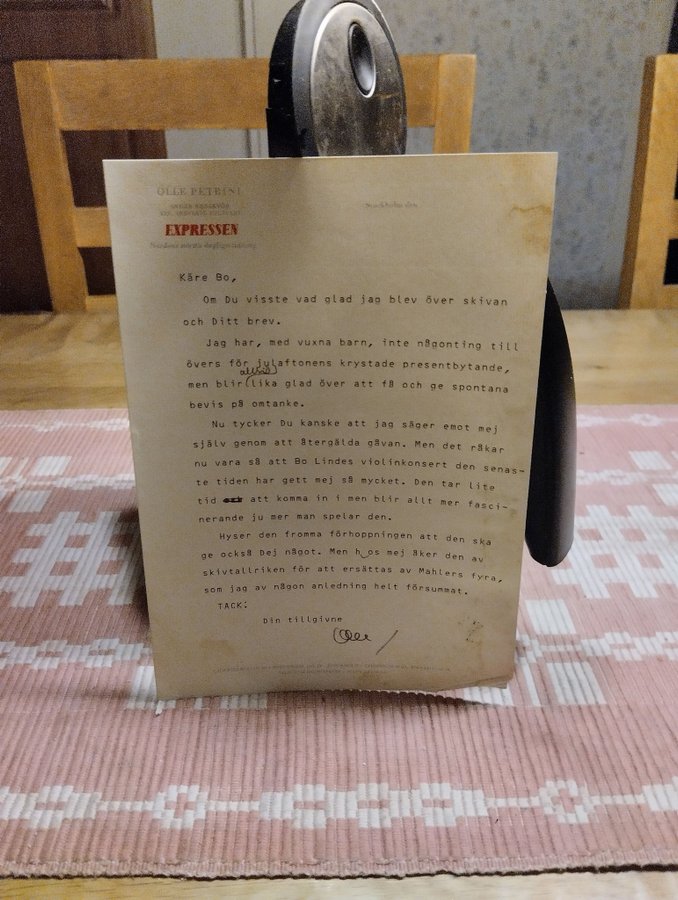 OLLE PETRINI
EXPRESSEN
Stockholm den
Käre Bo,
Om Du visste vad glad jag blev över skivan
och Ditt brev.
Jag har, med vuxna barn, inte någonting till
övers för julaftonens krystade presentbytande,
alltid
men blir lika glad över att få och ge spontana
bevis på omtanke.
Nu tycker Du kanske att jag säger emot mej
själv genom att återgälda gåvan. Men det råkar
nu vara så att Bo Lindes violinkonsert den senas-
te tiden har gett mej så mycket. Den tar lite
tid att komma in i men blir allt mer fasci-
nerande ju mer man spelar den.
Hyser den fromma förhoppningen att den ska
ge också Dej något. Men hos mej åker den av
skivtallriken för att ersättas av Mahlers fyra,
som jag av någon anledning helt försummat.
TACK:
Din tillgivne
Olle